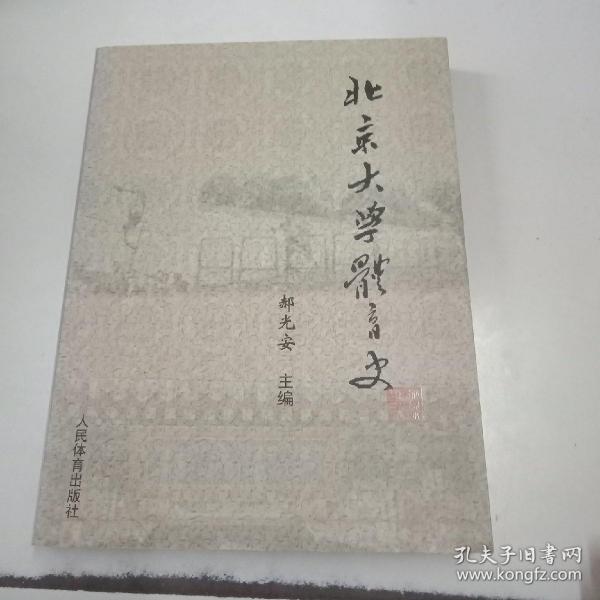 北京大学體育史
郝光安 主编
人民体育出版社
孔夫子旧书网
www.kongfz.com